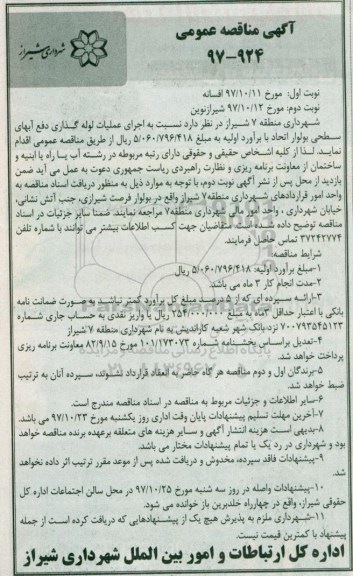 آگهی مناقصه عمومی
۹۷-۹۲۴
شهرداری شیراز
نوبت اول: مورخ ۹۷/۱۰/۱۱ افسانه
نوبت دوم: مورخ ۹۷/۱۰/۱۲ شیرازنوین
شهرداری منطقه ۷ شیراز در نظر دارد نسبت به اجرای عملیات لوله گذاری دفع آبهای
سطحی بولوار اتحاد با برآورد اولیه به مبلغ ۵/۰۶۰/۷۹۶/۴۱۸ ریال از طریق مناقصه عمومی اقدام
نماید. لذا از کلیه اشخاص حقیقی و حقوقی دارای رتبه مربوطه در رشته آب یا راه یا ابنیه و
ساختمان از معاونت برنامه ریزی و نظارت راهبردی ریاست جمهوری دعوت به عمل می آید ضمن
بازدید از محل پس از نشر آگهی نوبت دوم، با توجه به موارد ذیل به منظور دریافت اسناد مناقصه به
واحد امور قراردادهای شهرداری منطقه۷ شیراز واقع در بولوار فرصت شیرازی، جنب آتش نشانی،
خیابان شهرداری ، واحد امور مالی شهرداری منطقه۷ مراجعه نمایند. ضمنا سایر جزئیات در اسناد
مناقصه توضیح داده شده است. متقاضیان جهت کسب اطلاعات بیشتر می توانند با شماره تلفن
۳۷۲۴۲۷۷۴ تماس حاصل فرمایند.
شرایط مناقصه:
۱-مبلغ برآورد اولیه: ۵/۰۶۰/۷۹۶/۴۱۸ ریال
۲-مدت انجام کار ۳ ماه می باشد.
۳-ارائه سپرده ای که از ۵ درصد مبلغ کل برآورد کمتر نباشد به صورت ضمانت نامه
بانکی با اعتبار حداقل ۳ماه به مبلغ ۲۵۴/۰۰۰/۰۰۰ ریال یا واریز نقدی به حساب جاری شماره
۷۰۰۷۹۳۵۴۵۱۲۳ نزدبانک شهر شعبه کاراندیش به نام شهرداری منطقه ۷ شیراز
۴-تعدیل براساس بخشنامه شماره ۱۰۱/۱۷۳۰۷۳ مورخ ۸۲/۹/۱۵ معاونت برنامه ریزی
پرداخت خواهد شد.
۵-برندگان اول و دوم مناقصه هر گاه حاضر به انعقاد قرارداد نشوند، سپرده آنان به ترتیب
ضبط خواهد شد.
۶-سایر اطلاعات و جزئیات مربوط به مناقصه در اسناد مناقصه مندرج است.
۷-آخرین مهلت تسلیم پیشنهادات پایان وقت اداری روز یکشنبه مورخ ۹۷/۱۰/۲۳ می باشد.
۸-بدیهی است هزینه انتشار آگهی و سایر هزینه های متعلقه برعهده برنده مناقصه خواهد
بود و شهرداری در رد یک یا تمام پیشنهادات مختار می باشد.
۹-پیشنهادات فاقد سپرده، مخدوش و دریافت شده پس از موعد مقرر ترتیب اثر داده نخواهد
شد.
۱۰-پیشنهادات واصله در روز سه شنبه مورخ ۹۷/۱۰/۲۵ در محل سالن اجتماعات اداره کل
حقوقی شیراز، واقع در چهارراه خلدبرین باز خوانده می شود.
۱۱-شهرداری ملزم به پذیرش هیچ یک از پیشنهادهایی که دریافت کرده است از جمله
پیشنهاد با کمترین قیمت نیست.
اداره کل ارتباطات و امور بین الملل شهرداری شیراز